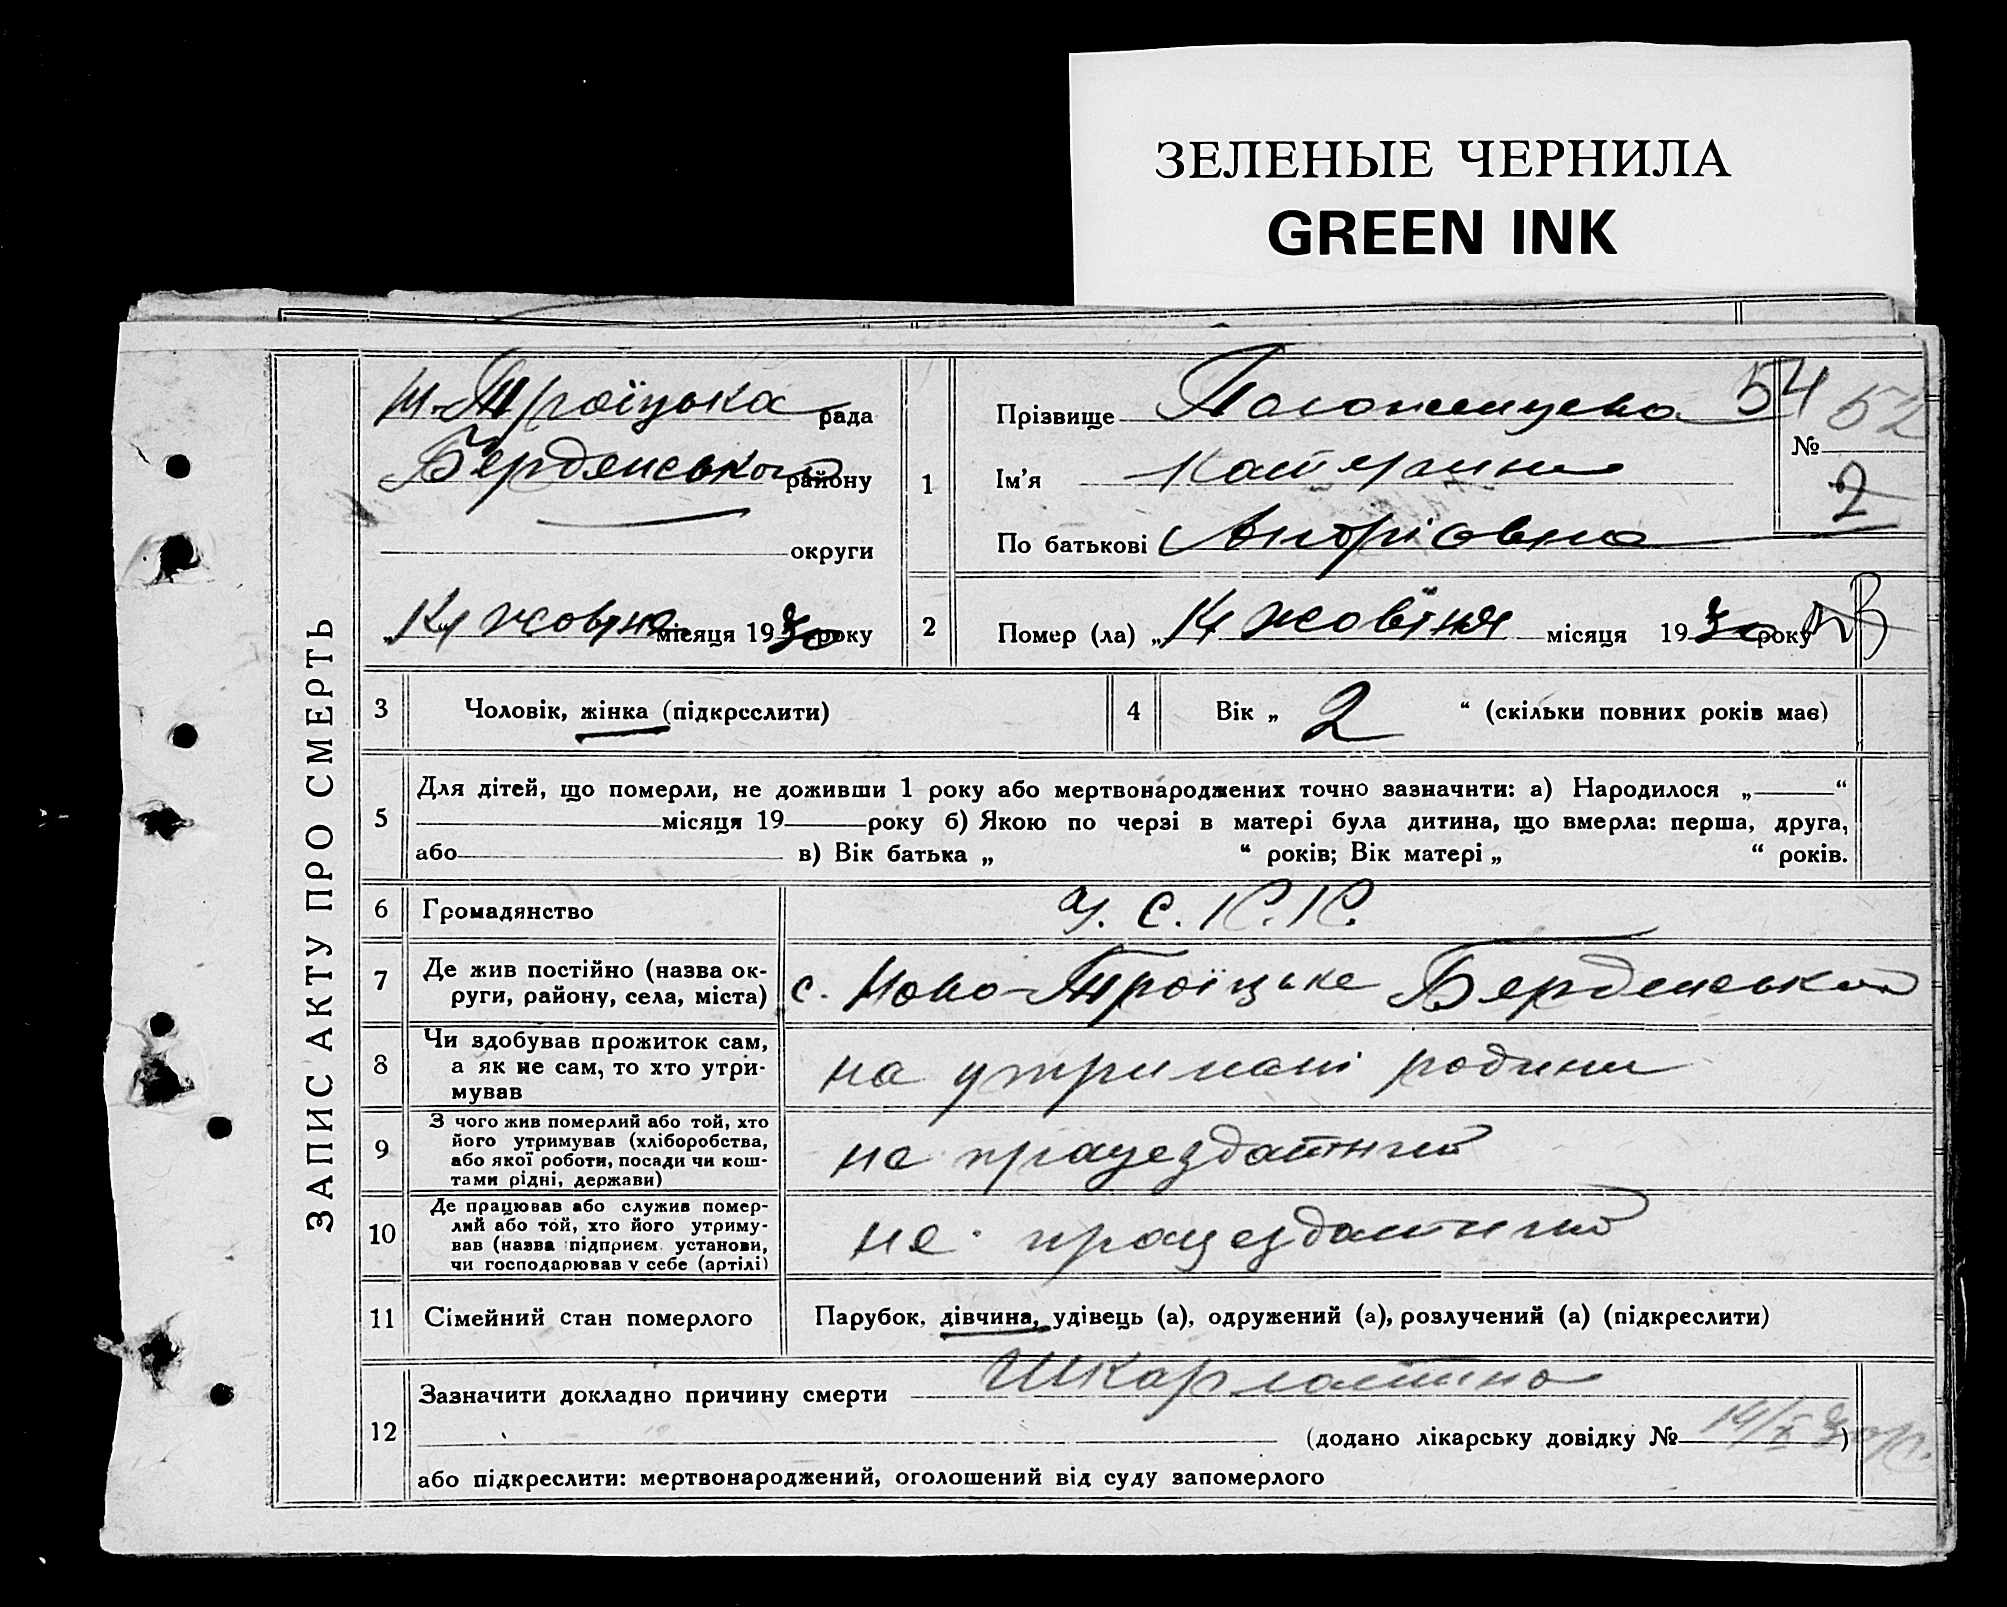 ЗЕЛЕНЫЕ ЧЕРНИЛА
GREEN INK
ЗАПИС АКТУ ПРО СМЕРТЬ
Н-Троїцька рада
Бердянського району
округи
„14 жовтня місяця 1930 року
1
Прізвище
Ім'я Катерина
По батькові Андрієвна
54 52
№
2
2
Помер (ла) „14 жовтня місяця 1930 року
3 Чоловік, жінка (підкреслити)
4 Вік „ 2 “ (скільки повних років має)
5 Для дітей, що померли, не доживши 1 року або мертвонароджених точно зазначити: а) Народилося „ “
місяця 19 року б) Якою по черзі в матері була дитина, що вмерла: перша, друга,
або в) Вік батька „ “ років; Вік матері „ “ років.
6 Громадянство У. С. Р. Р.
7 Де жив постійно (назва ок-
руги, району, села, міста) с. Ново-Троїцьке
8 Чи здобував прожиток сам,
а як не сам, то хто утри-
мував на утримані родини
9 З чого жив померлий або той, хто
його утримував (хліборобства,
або якої роботи, посади чи кош-
тами рідні, держави) не працездатний
10 Де працював або служив помер-
лий або той, хто його утриму-
вав (назва підприєм. установи,
чи господарював у себе (артілі) не працездатний
11 Сімейний стан померлого Парубок, дівчина, удівець (а), одружений (а), розлучений (а) (підкреслити)
12 Зазначити докладно причину смерти Шкарлатина
(додано лікарську довідку № 14/X 30р.)
або підкреслити: мертвонароджений, оголошений від суду запомерлого